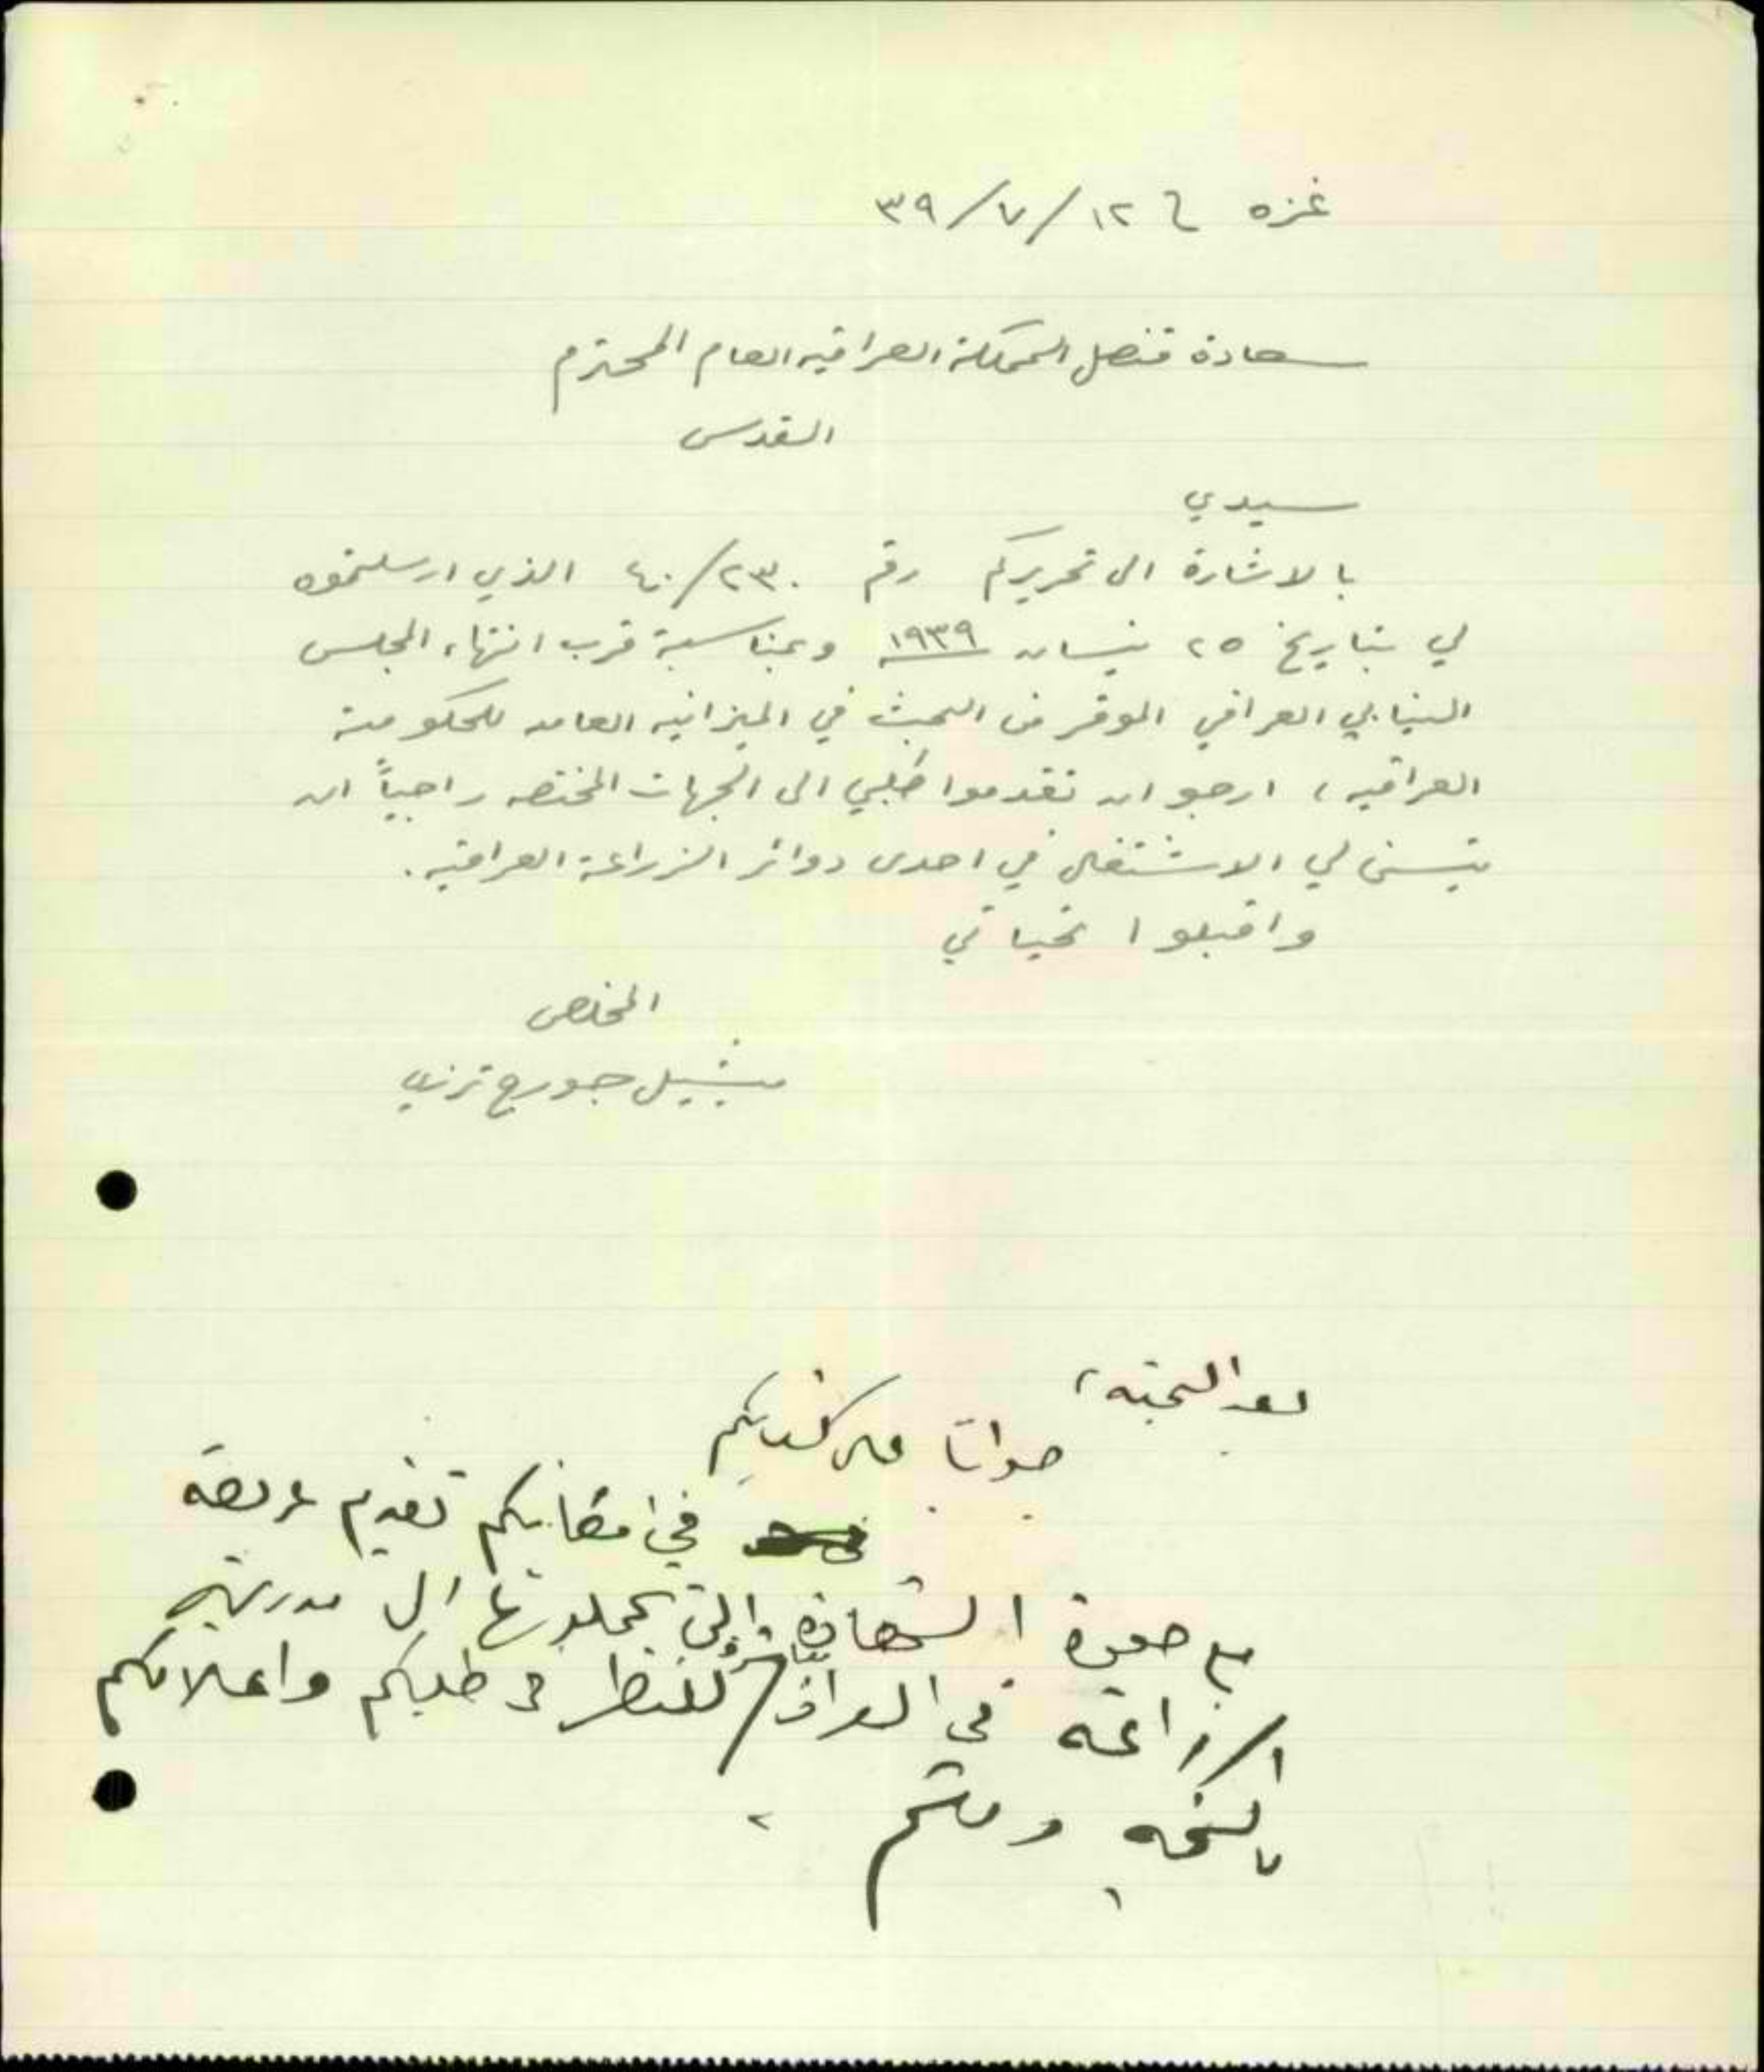 غزه في ١٢/٧/٣٩
سعادة قنصل المملكة العراقيه العام المحترم
القدس
سيدي
بالاشارة الى تحريركم رقم ٤٠/٢٣٠ الذي ارسلتموه
لي بتاريخ ٢٥ نيسان ١٩٣٩ وبمناسبة قرب انتهاء المجلس
النيابي العراقي الموقر من البحث في الميزانيه العامه للحكومة
العراقيه، ارجو ان تقدموا طلبي الى الجهات المختصه راجياً ان
يتسنى لي الاشتغال في احدى دوائر الزراعة العراقيه.
واقبلوا تحياتي
المخلص
ميشيل جورج ترزي
بعد التحية،
جوابا على كتابكم
في امكانكم تقديم عريضة
مع صورة الشهادة التي تحملونها الى مديرية
الزراعة في العراق للنظر في طلبكم واعلامكم
بالنتيجه ودمتم.